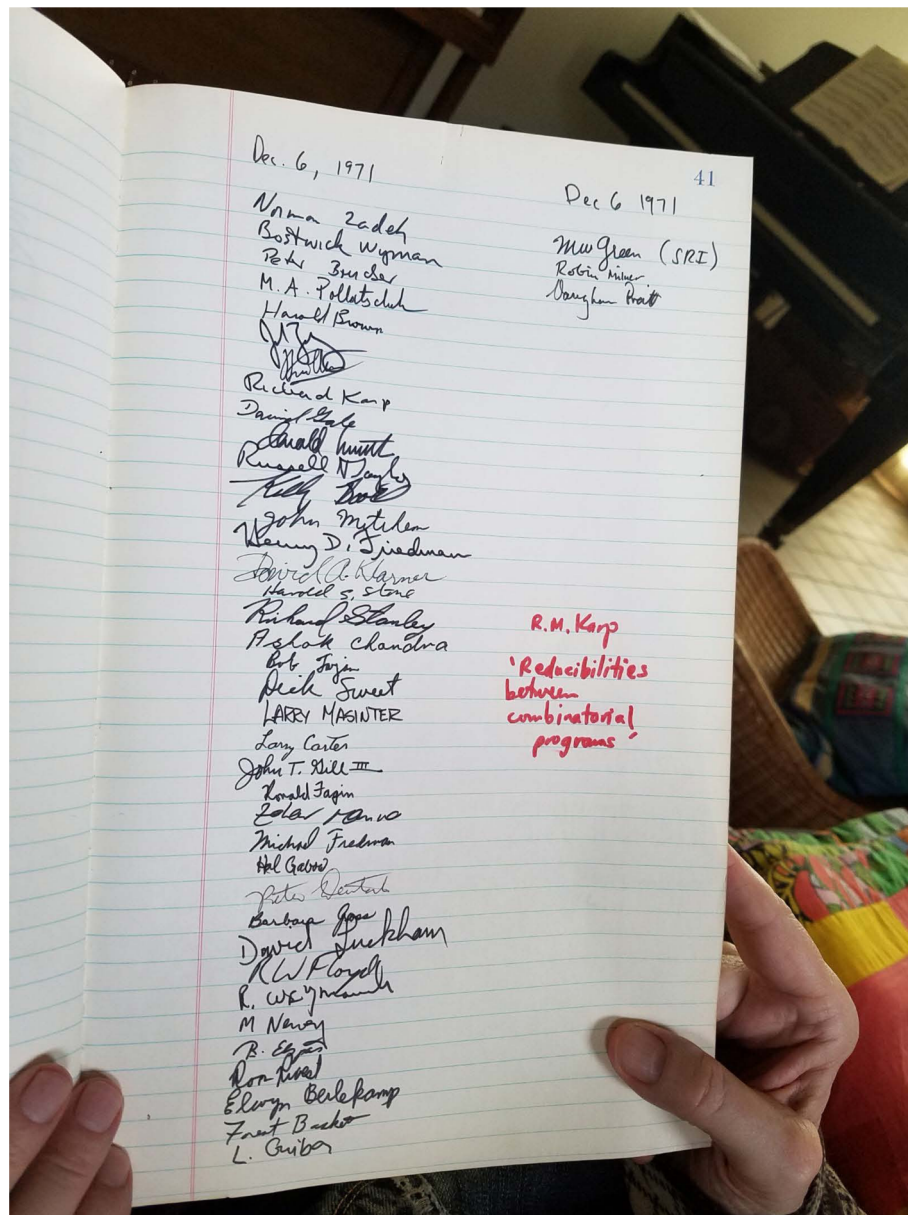 41
Dec. 6, 1971
Norman Zadeh
Bostwick Wyman
Peter
M. A. Pollatschek
Harold Brown
Richard Karp
David Gale
Donald Knuth
Russell N Taylor
Kelly
John Mitchem
Henry D. Friedman
David A. Klarner
Harold S. Stone
Richard Stanley
Ashok Chandra
Bob Fagin
Dick Sweet
LARRY MASINTER
Larry Carter
John T. Gill III
Ronald Fagin
Zohar Manna
Michael Fredman
Hal Gabow
Peter
Barbara
David Luckham
RW Floyd
R. Weyhrauch
M Newey
B. Elspas
Ron Rivest
Elwyn Berlekamp
Forest Baskett
L. Guibas
Dec 6 1971
MW Green (SRI)
Robin Milner
Vaughan Pratt
R.M. Karp
'Reducibilities
between
combinatorial
programs'